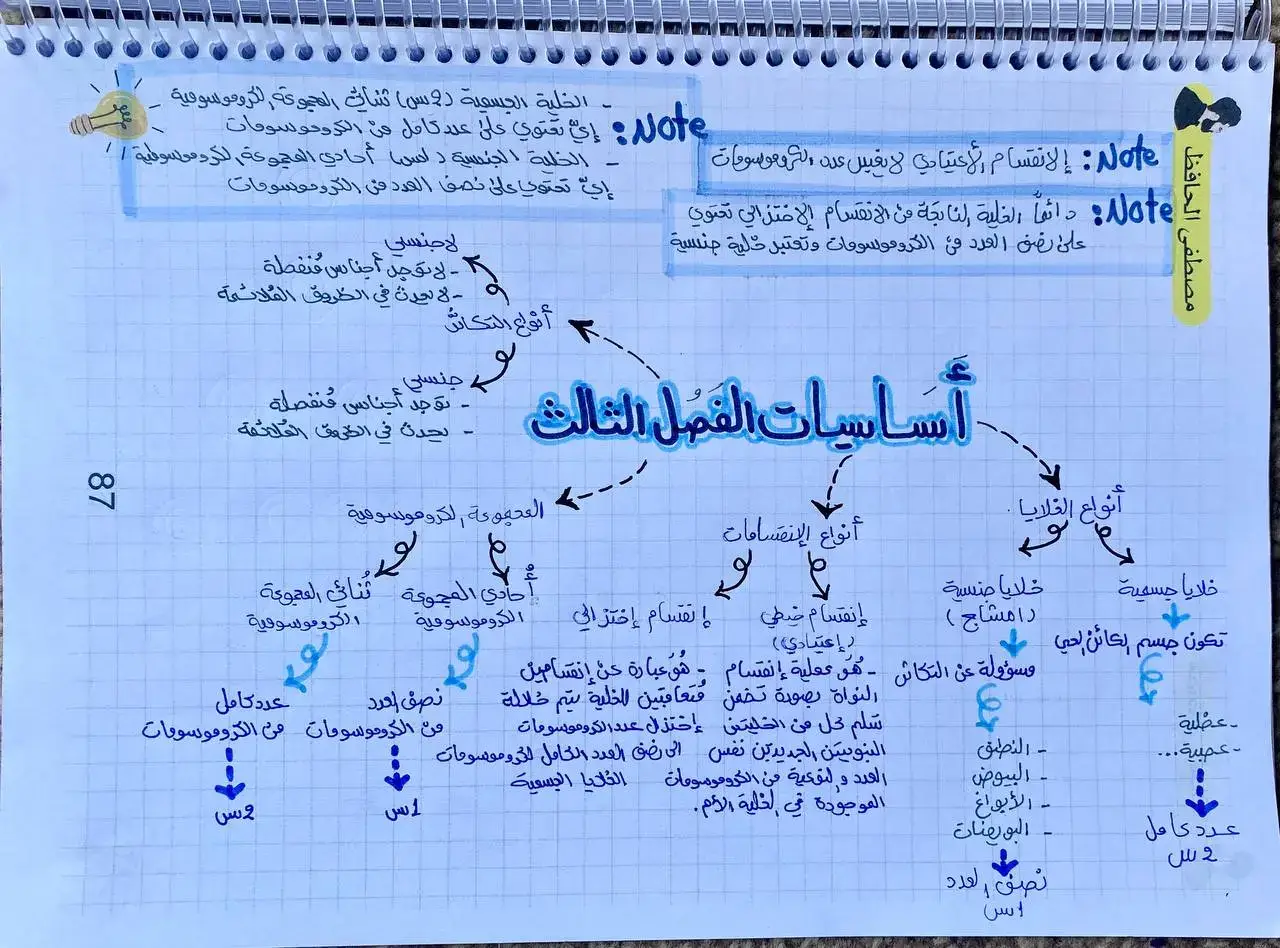 - الخلية الجسمية (2س) ثنائي المجموعة الكروموسومية
Note: إيّ تحتوي على عدد كامل من الكروموسومات
- الخلية الجنسية (1س) أحادي المجموعة الكروموسومية
إيّ تحتوي على نصف العدد من الكروموسومات
Note: الإنقسام الأعتيادي لا يغيير عدد الكروموسومات
Note: دائماً الخلية الناتجة من الانقسام الإختزالي تحتوي
على نصف العدد من الكروموسومات وتعتبر خلية جنسية
مصطفى الحافظ
أَسَاسيات الفَصُل الثالث
أنواع التكاثُ
لاجنسي
- لا توجد أجناس مُنفصلة
- لا يحدث في الظروف المُلائمة
جنسي
- توجد أجناس مُنفصلة
- يحدث في الظروف المُلائمة
87
أنواع الخلايا
خلايا جسمية
تكون جسم الكائن الحي
- عضلية
- عصبية...
عدد كامل
2س
خلايا جنسية
(امشاج)
مسؤولة عن التكاثر
- النطف
- البيوض
- الأبواغ
- البويضات
نصف العدد
1س
أنواع الإنقسامات
إنقسام خيطي
(إعتيادي)
- هُوَ عملية إنقسام
النواة بصورة تضمن
تسلم كل من الخليتين
البنويتين الجديدتين نفس
العدد والنوعية من الكروموسومات
الموجودة في الخلية الأم.
إنقسام إختزالي
- هُوَ عبارة عن إنقسامين
مُتعاقبين للخلية يتم خلاله
إختزال عدد الكروموسومات
الى نصف العدد الكامل لكروموسومات
الخلايا الجسمية
المجموعة الكروموسومية
أُحادي المجموعة
الكروموسومية
نصف العدد
من الكروموسومات
1س
ثُنائي المجموعة
الكروموسومية
عدد كامل
من الكروموسومات
2س